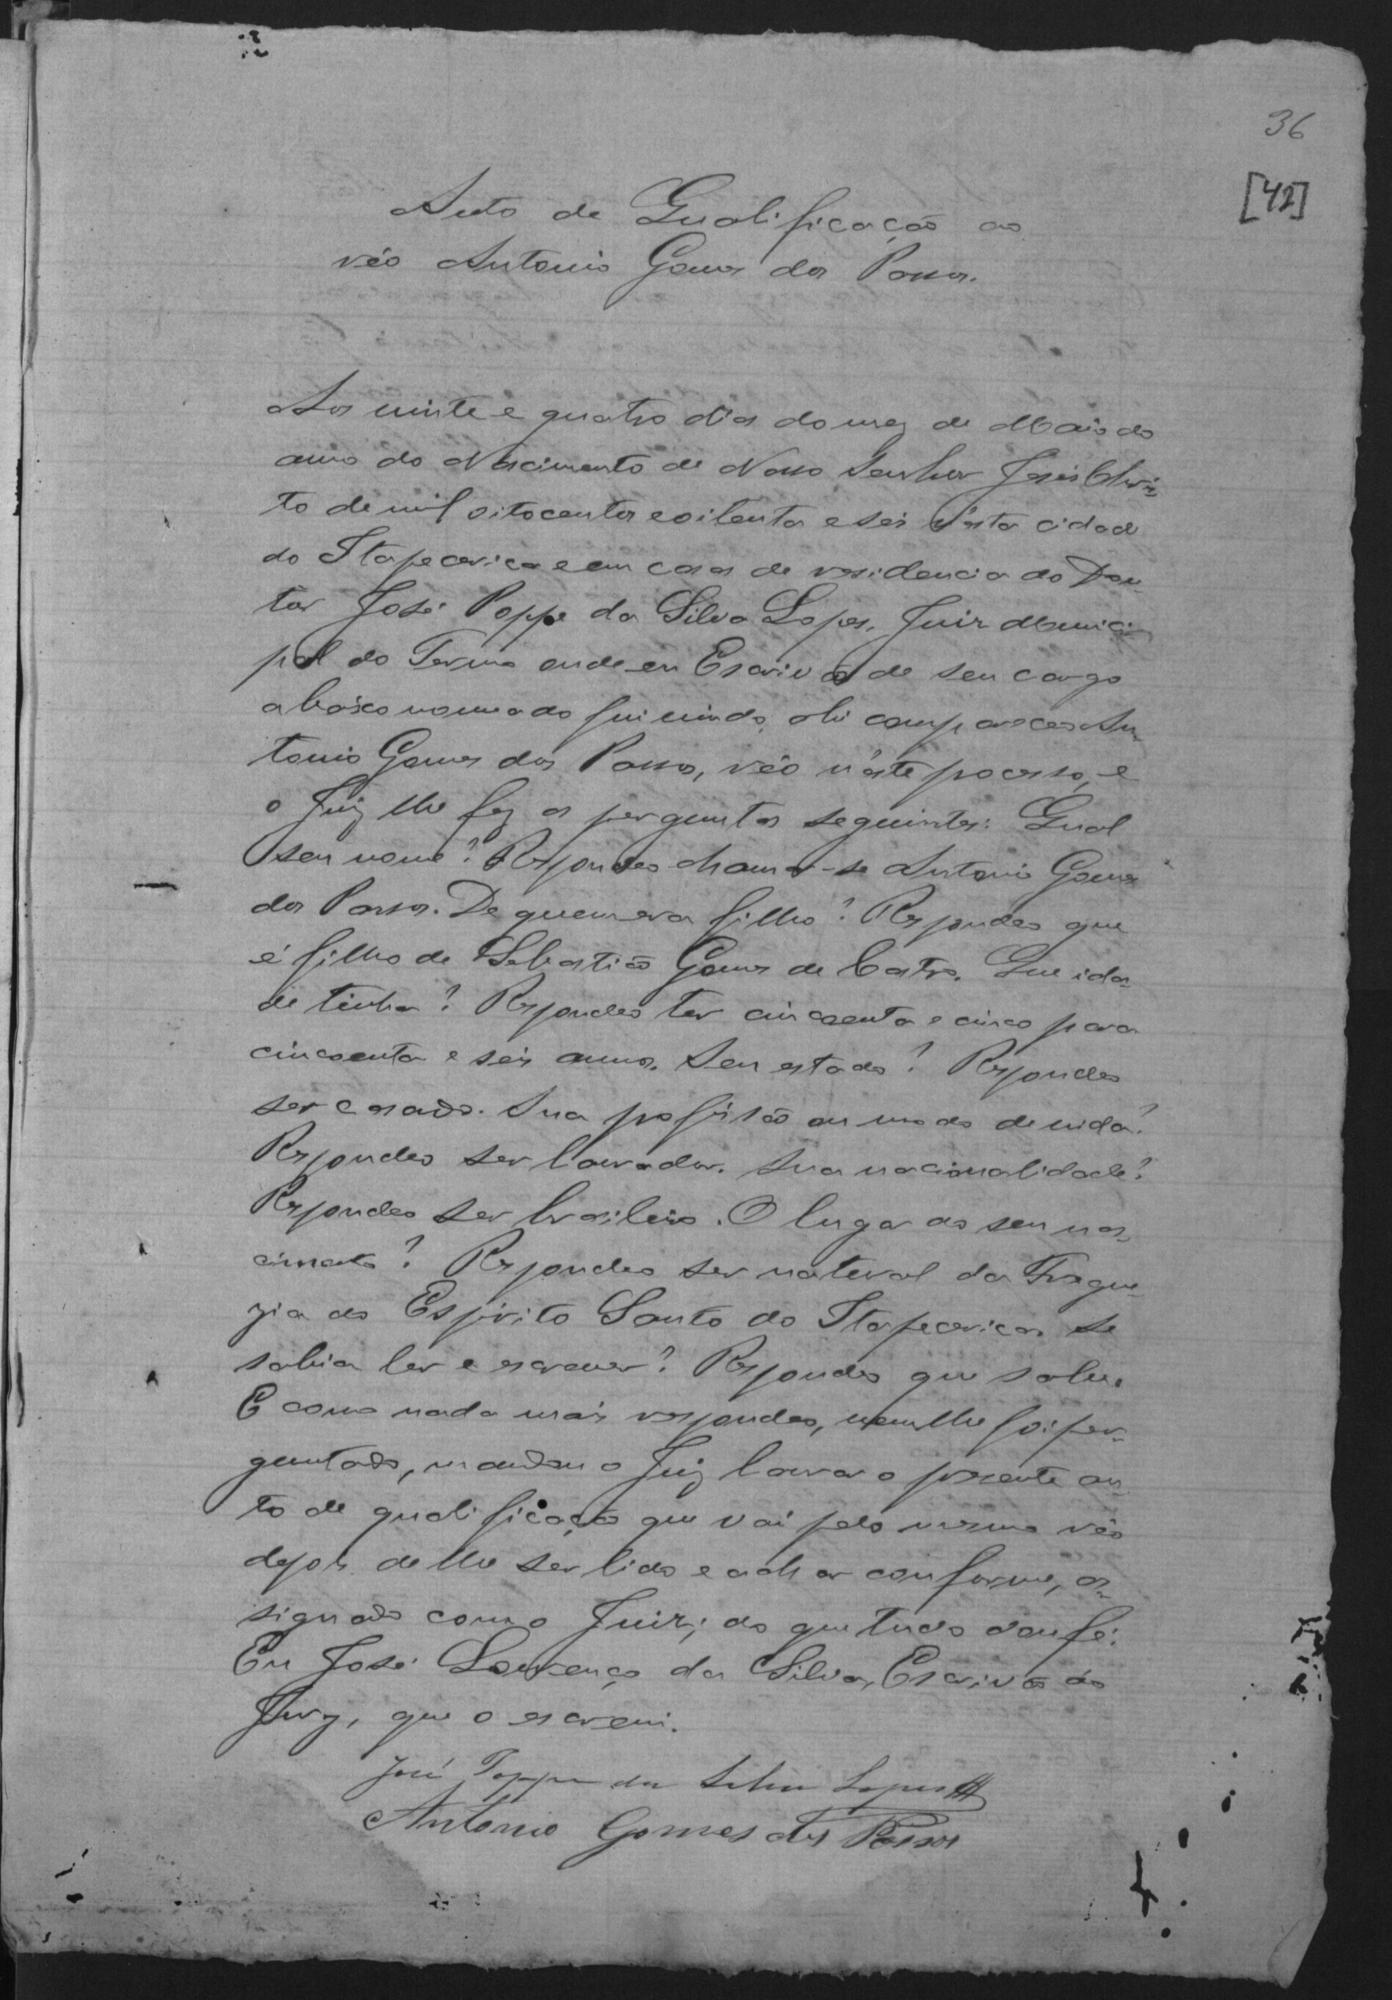 36
[42]
Auto de Qualificação ao
réo Antonio Gomes dos Passos.
Aos vinte e quatro dias do mez de Maio do
anno do Nascimento de Nosso Senhor Jesus Chris-
to de mil oitocentos e oitenta e seis n'esta cidade
do Itapecerica e em casa de residencia do Dou-
tor José Poppe da Silva Lopes, Juiz Munici-
pal do Termo onde eu Escrivão de seu cargo
abaixo nomeado fui vindo, ahi compareceo An-
tonio Gomes dos Passos, réo n'este pocesso, e
o Juiz lhe fez as perguntas seguintes: Qual
seu nome? Respondeo chamar-se Antonio Gomes
dos Passos. De quem era filho? Respondeo que
é filho de Sebastião Gomes de Castro. Que ida-
de tinha? Respondeo ter cincoenta e cinco para
cincoenta e seis annos. Seu estado? Respondeo
ser casado. Sua profissão ou modo de vida?
Respondeo ser lavrador. Sua nacionalidade?
Respondeo ser brasileiro. O lugar do seu nas-
cimento? Respondeo ser natural da Fregue-
zia do Espirito Santo do Itapecerica. Se
sabia ler e escrever? Respondeo que sabe.
E como nada mais respondeo, nem lhe foi per-
guntado, mandou o Juiz lavrar o presente au-
to de qualificação que vai pelo mesmo réo
depois de lhe ser lido e achar conforme, as-
signado com o Juiz; do que tudo dou fé.
Eu José Lourenço da Silva, Escrivão do
Jury, que o escrevi.
José Poppe da Silva Lopes
Antonio Gomes dos Passos